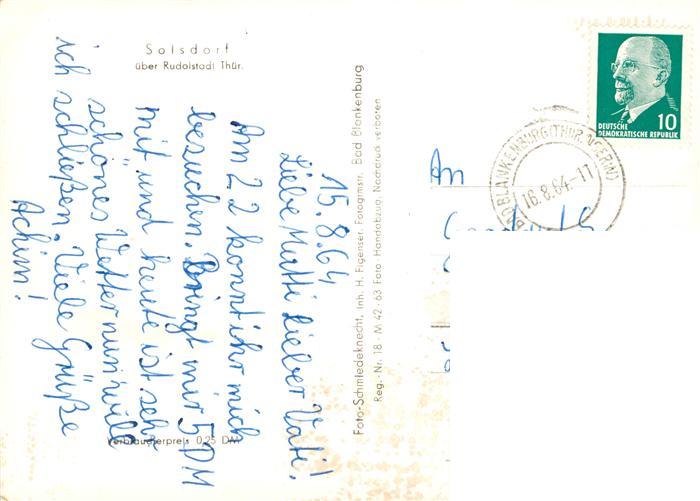 Solsdorf
über Rudolstadt Thür.
15.8.64
Liebe Mutti Lieber Vati!
Am 22 konnt ihr mich
besuchen. Bringt mir 5 DM
mit und heute ist sehr
schönes Wetter nun will
ich schließen. Viele Grüße
Achim!
Verbraucherpreis 0,25 DM
Foto-Schmiedeknecht, Inh. H. Figenser, Fotogrmstr. Bad Blankenburg
Reg.-Nr. 18 - M 42 - 63 Foto Handabzug. Nachdruck verboten
10
DEUTSCHE
DEMOKRATISCHE REPUBLIK
BAD BLANKENBURG (THÜR.
16.8.64.-17
An